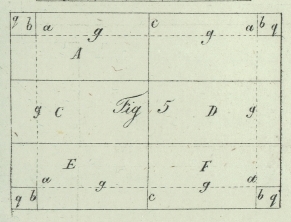 q b a g c g a b q
A
g C Fig 5 D g
E F
a g g a
q b c b q